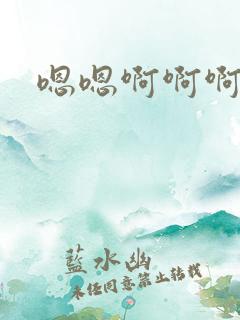 嗯嗯啊啊啊
蓝水幽
未经同意禁止转载